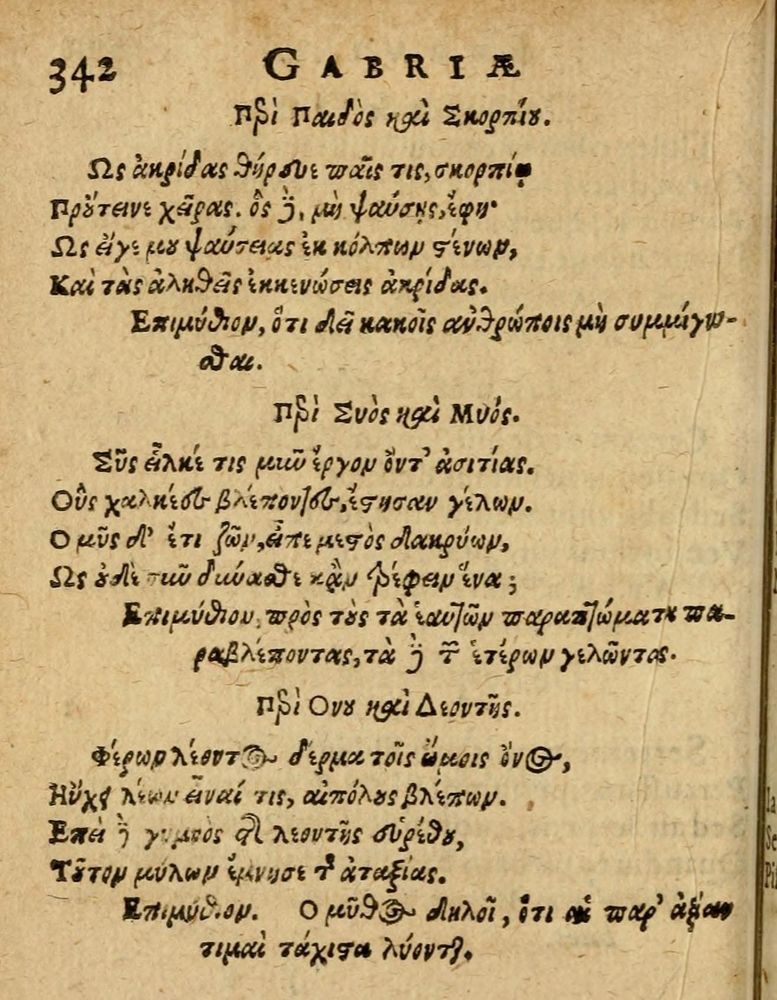 342 GABRIÆ
Περὶ Παιδὸς καὶ Σκορπίου.
Ως ἀκρίδας θήρευε παῖς τις, σκορπίῳ
Προὔτεινε χεῖρας. ὃς δὲ, μὴ ψαύσῃς, ἔφη·
Ως εἴγε μου ψαύσειας ἐκ κόλπων στένων,
Καὶ τὰς ἀληθεῖς ἐκκενώσεις ἀκρίδας.
Επιμύθιον, ὅτι δεῖ κακοῖς ἀνθρώποις μὴ συμμίγνυ-
σθαι.
Περὶ Συὸς καὶ Μυός.
Σῦς εἷλκέ τις μιῶ ἔργον ὄντ' ἀσιτίας.
Οὓς χαλκέες βλέποντες, ἔστησαν γέλων.
Ο μῦς δ' ἔτι ζῶν, εἶπε μεστὸς δακρύων,
Ως οὐδὲ σιῶ δύνασθε κἂν τρέφειν ἕνα;
Επιμύθιον, πρὸς τοὺς τὰ ἑαυτῶν παραπτώματα πα-
ραβλέποντας, τὰ δὲ τῶν ἑτέρων γελῶντας.
Περὶ Ονου καὶ Λεοντῆς.
Φέρων λέοντος δέρμα τοῖς ὤμοις ὄνος,
Ηὔχει λέων εἶναί τις, αἰπόλους βλέπων.
Επεὶ δὲ γυμνὸς τῆς λεοντῆς εὑρέθη,
Τοῦτον μύλων ἔμνησε τῆς ἀταξίας.
Επιμύθιον. Ο μῦθος δηλοῖ, ὅτι αἱ παρ' ἀξίαν
τιμαὶ τάχιστα λύονται.